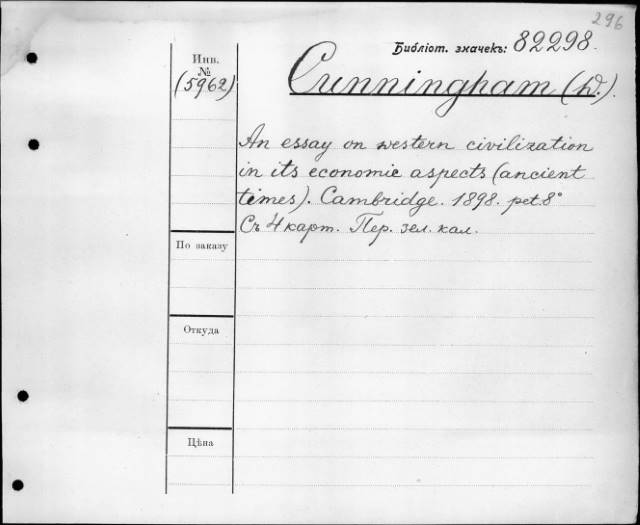 296
Библіот. значекъ: 82298.
Инв.
№
(5962)
Cunningham (W.).
An essay on western civilization
in its economic aspects (ancient
times). Cambridge. 1898. pet. 8°
Съ 4 карт. Пер. зел. кал.
По заказу
Откуда
Цѣна